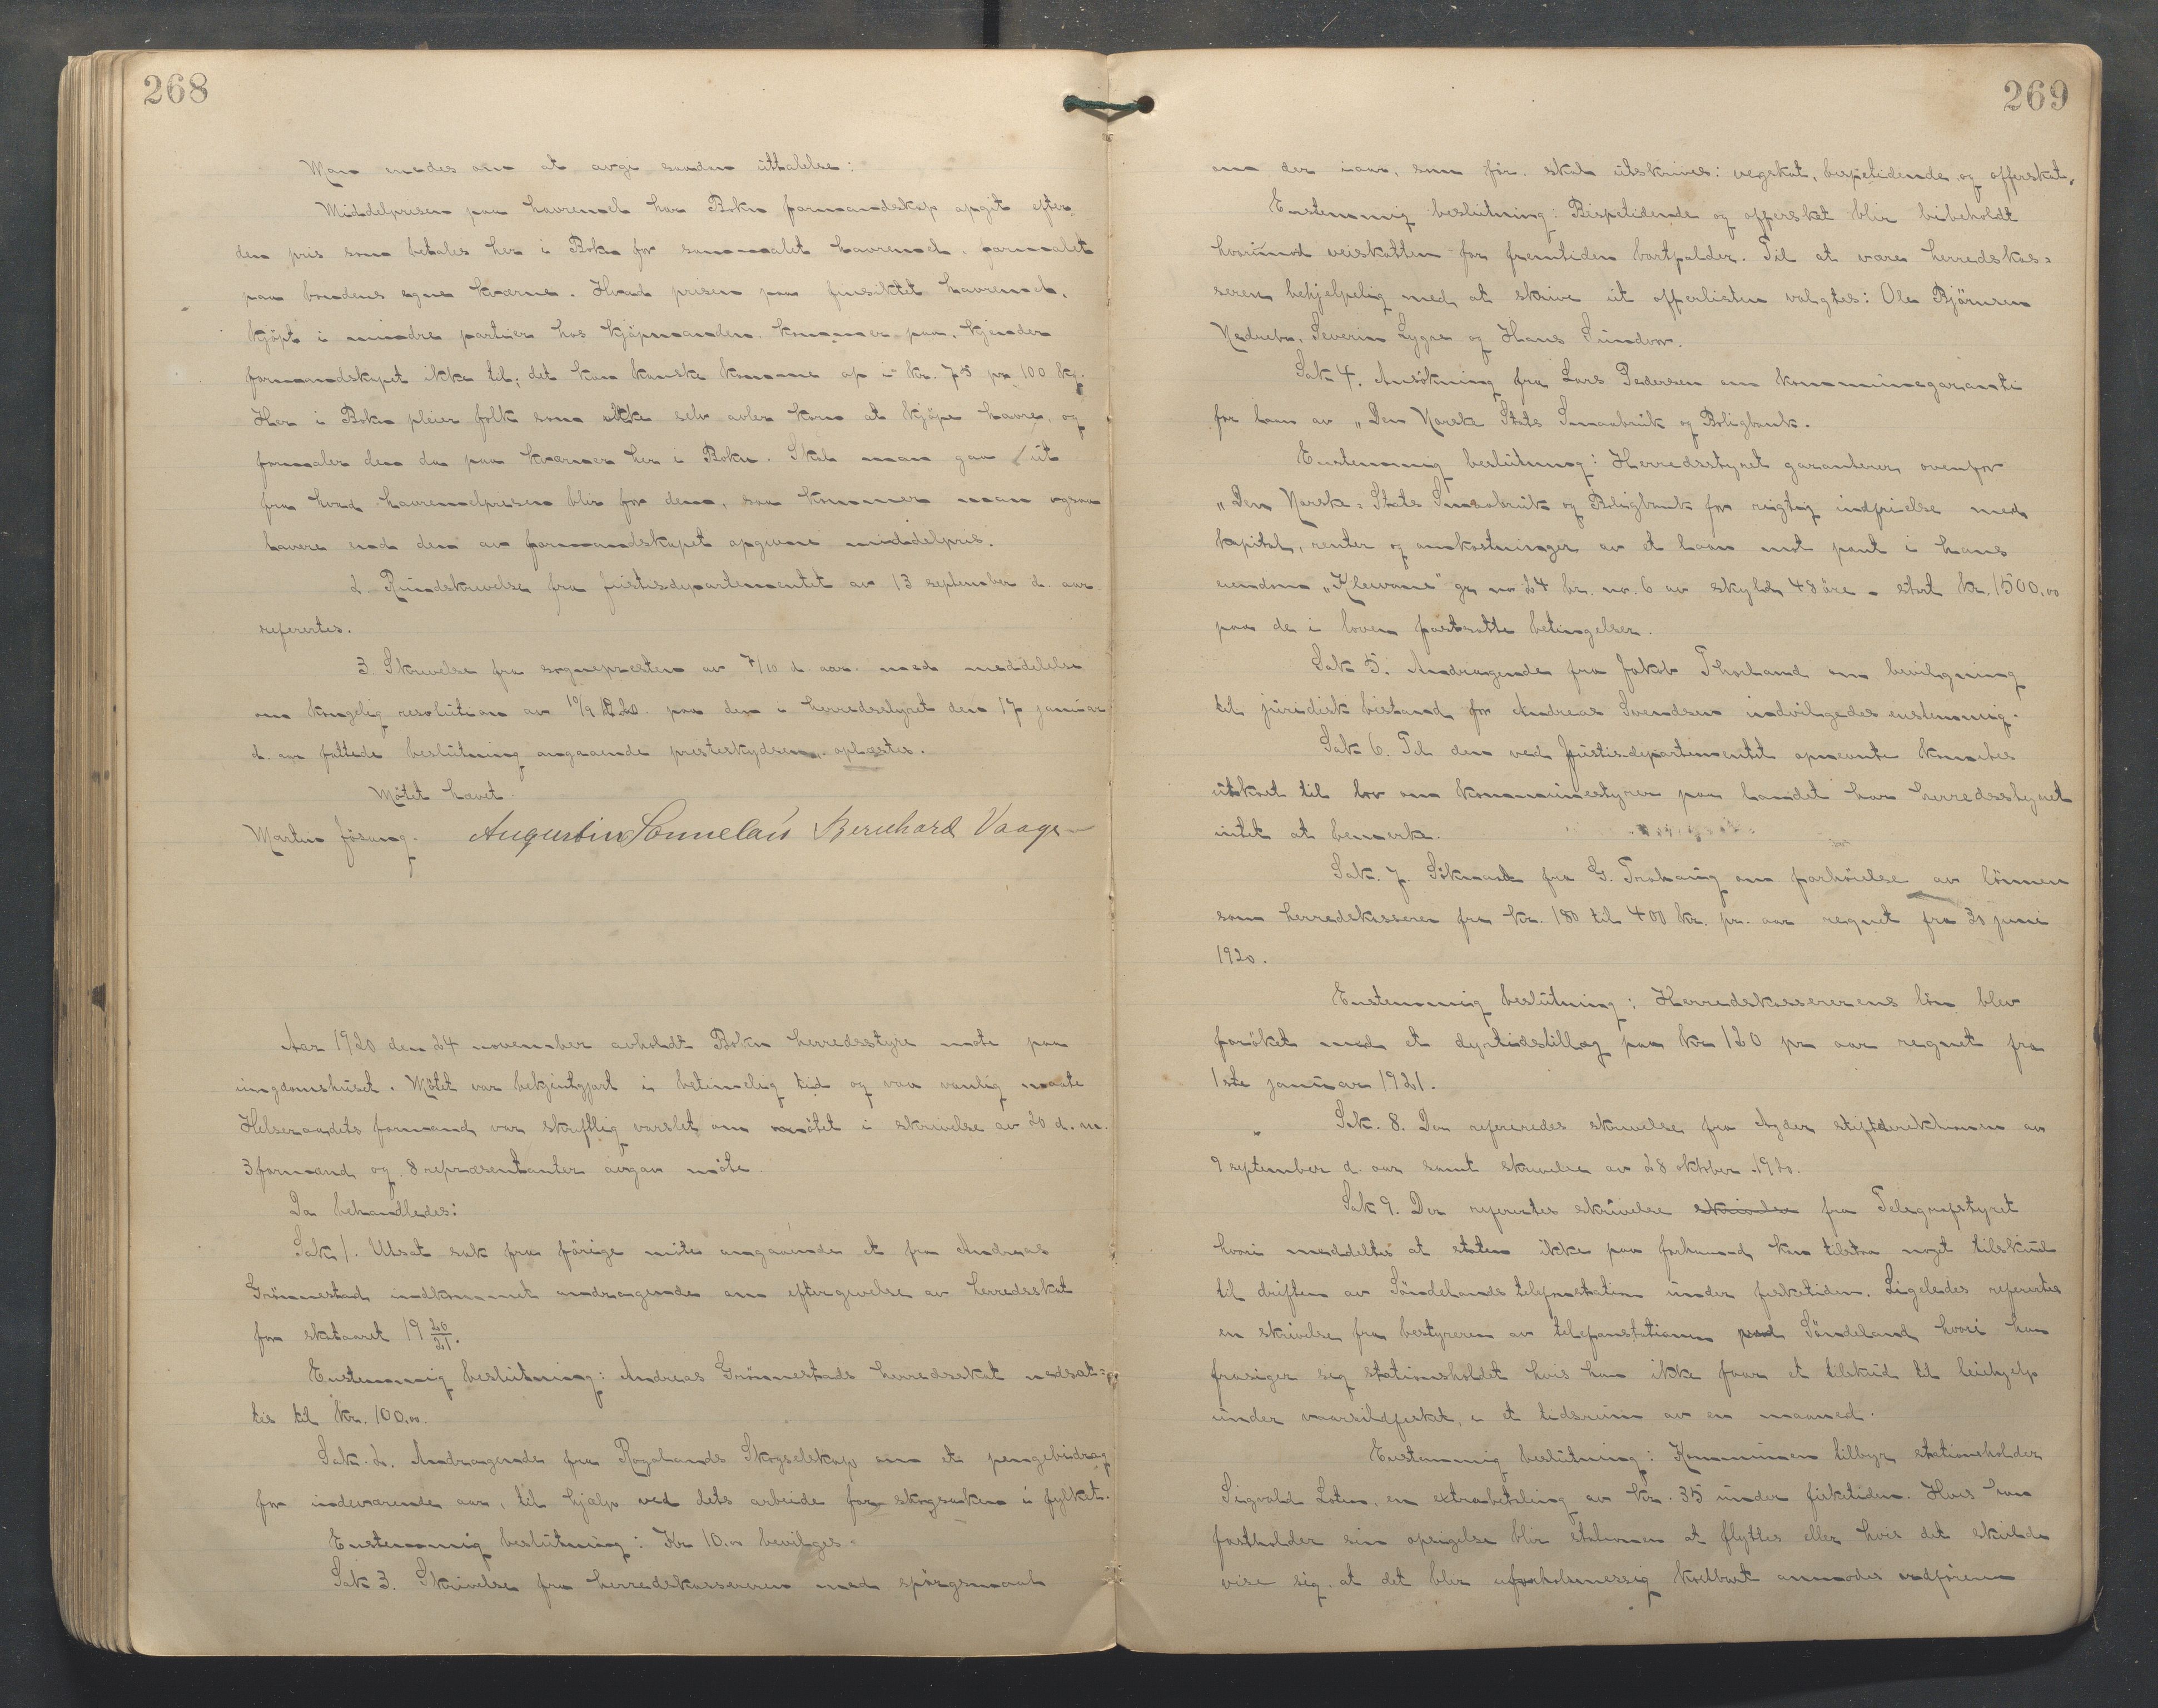 268
Man enedes om at avgi saadan uttalelse:
Middelprisen paa havremel har Bokn formandskap opgit efter
den pris som betales her i Bokn for sammalet havremel, formalet
paa bondens egne kværne. Hvad prisen paa finsiktet havremel,
kjöpt i mindre partier hos kjöpmanden, kommer paa, kjender
formandskapet ikke til; det kan kanske komme op i kr. 75 pr 100 kg.
Her i Bokn pleier folk som ikke selv avler korn at kjöpe havre, og
formaler den da paa kværner her i Bokn. Skal man gaa ut
fra hvad havremelprisen blir for dem, saa kommer man ogsaa
lavere end den av formandskapet opgivne middelpris.
2. Rundskrivelse fra justisdepartementet av 13 september d. aar
refertes.
3. Skrivelse fra sognepresten av 7/10 d. aar. med meddelelse
om kongelig resolution av 10/9 1920. paa den i herredsstyret den 17 januar
d. aar fattede beslutning angaaende presteskydsen, oplæstes.
Mötet hævet.
Martin Jösang. Augustin Sunnelan's Bernhard Vaage
Aar 1920 den 24 november avholdt Bokn herredsstyre möte paa
ungdomshuset. Mötet var bekjentgjort i betimelig tid og paa vanlig maate
Helseraadets formand var skriftlig varslet om mötet i skrivelse av 20 d. m.
3 formænd og 8 repræsentanter avgav möte.
Da behandledes:
Sak 1. Utsat sak fra forrige möte angaaende et fra Andreas
Grönnestad indkommet andragende om eftergivelse av herredsskat
for skataaret 19 20/21.
Enstemmig beslutning: Andreas Grönnestads herredsskat nedsat=
tes til kr. 100,00.
Sak. 2. Andragende fra Rogalands Skogselskap om et pengebidrag
for indeværende aar, til hjælp ved dets arbeide for skogsaken i fylket.
Enstemmig beslutning: Kr 10.00 bevilges.
Sak 3. Skrivelse fra herredskassereren med spörgsmaal
269
om der iaar, som för. skal utskrives: vegskat, bispetidende og offerskat.
Enstemmig beslutning: Bispetidende og offerskat blir bibeholdt
hvorimod veiskatten for fremtiden bortfalder. Til at være herredskas=
seren behjelpelig med at skrive ut offerlisten valgtes: Ole Björnsen
Nedrebø, Severin Lygre og Hans Sundvor.
Sak 4. Ansökning fra Lars Pedersen om kommunegaranti
for laan av „Den Norske Stats Smaabruk og Boligbank.
Enstemmig beslutning: Herredsstyret garanterer ovenfor
„Den Norske Stats Smaabruk og Boligbank for rigtig indfrielse med
kapital, renter og omkostninger av et laan mot pant i hans
eiendom „Klevane" gr. no 24 br. no. 6 av skyld 48 öre – stort kr. 1500.00
paa de i loven fastsatte betingelser.
Sak 5. Andragende fra Jakob Thorland om bevilgning
til juridisk bistand for Andreas Svendsen indvilgedes enstemmig.
Sak 6. Til den ved Justisdepartementet opnevnte komites
utkast til lov om kommunestyrer paa landet har herredsstyret
intet at bemerke.
Sak. 7. Söknad fra G. Trosnaug om forhöielse av lönnen
som herredskasserer fra kr. 180 til 400 kr. pr. aar regnet fra 30 juni
1920.
Enstemmig beslutning: Herredskassererens lön blev
foröket med et dyrtidstillæg paa kr 120 pr aar regnet fra
1ste januar 1921.
Sak. 8. Da refereredes skrivelse fra Agder stiftdirektion av
9 september d. aar samt skrivelse av 28 oktober 1920.
Sak 9. Der refertes skrivelse skrivelse fra Telegrafstyret
hvori meddeltes at staten ikke paa forhaand kan tilstaa noget tilskud
til driften av Söndelands telefonstation under fisketiden. Ligeledes refertes
en skrivelse fra bestyreren av telefonstationen paa Söndeland hvori han
frasiger sig stationsholdet hvis han ikke faar et tilskud til leiehjelp
under vaarsildfisket, i et tidsrum av en maaned.
Enstemmig beslutning: Kommunen tilbyr stationsholder
Sigvald Loten, en extrabetaling av kr. 35 under fisketiden. Hvis han
fastholder sin opsigelse blir stationen at flyttes eller hvis det skulde
vise sig at det blir uforholsmessig kostbart anmodes ordföreren